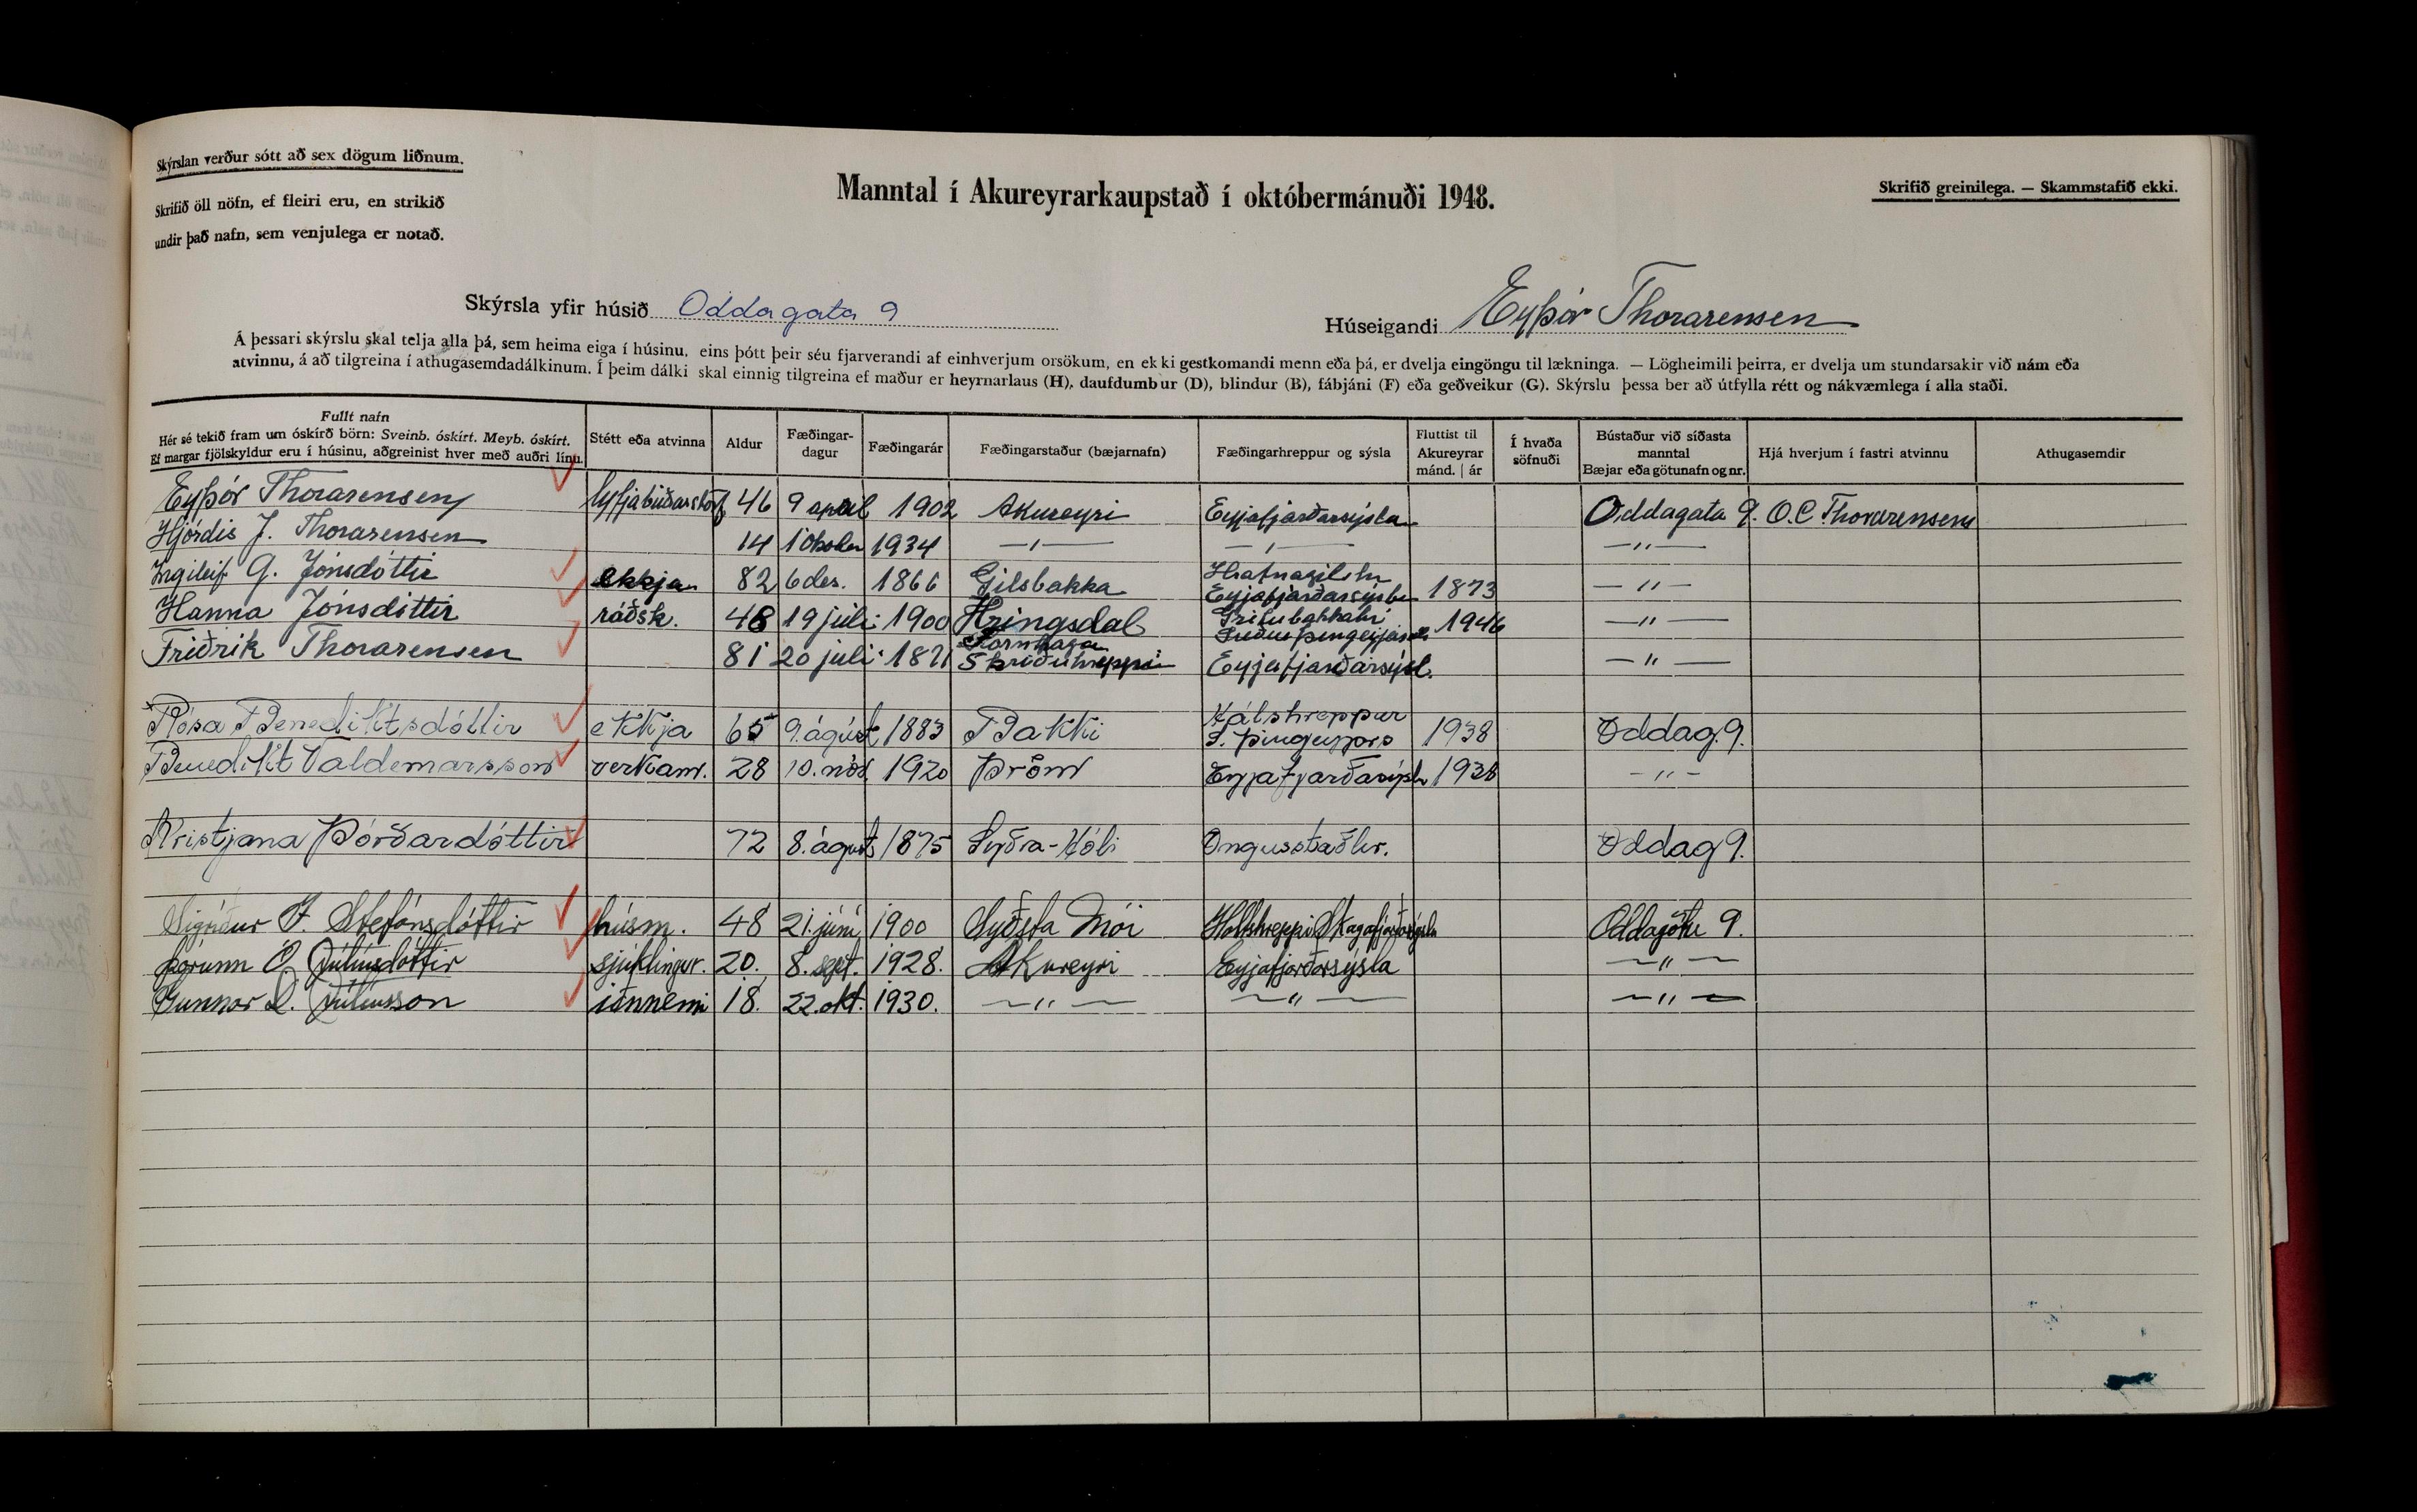 Skýrslan verður sótt að sex dögum liðnum.
Skrifið öll nöfn, ef fleiri eru, en strikið
undir það nafn, sem venjulega er notað.
Manntal í Akureyrarkaupstað í októbermánuði 1948.
Skrifið greinilega. — Skammstafið ekki.
Skýrsla yfir húsið Oddagata 9
Húseigandi Eyþór Thorarensen
Á þessari skýrslu skal telja alla þá, sem heima eiga í húsinu, eins þótt þeir séu fjarverandi af einhverjum orsökum, en ekki gestkomandi menn eða þá, er dvelja eingöngu til lækninga. — Lögheimili þeirra, er dvelja um stundarsakir við nám eða
atvinnu, á að tilgreina í athugasemdadálkinum. Í þeim dálki skal einnig tilgreina ef maður er heyrnarlaus (H), daufdumbur (D), blindur (B), fábjáni (F) eða geðveikur (G). Skýrslu þessa ber að útfylla rétt og nákvæmlega í alla staði.
Fullt nafn
Hér sé tekið fram um óskírð börn: Sveinb. óskírt. Meyb. óskírt.
Ef margar fjölskyldur eru í húsinu, aðgreinist hver með auðri línu.
Stétt eða atvinna
Aldur
Fæðingar-
dagur
Fæðingarár
Fæðingarstaður (bæjarnafn)
Fæðingarhreppur og sýsla
Fluttist til
Akureyrar
mánd. | ár
Í hvaða
söfnuði
Bústaður við síðasta
manntal
Bæjar eða götunafn og nr.
Hjá hverjum í fastri atvinnu
Athugasemdir
Eyþór Thorarensen lyfjabúðarstörf 46 9 apríl 1902 Akureyri Eyjafjarðarsýsla Oddagata 9. O.C Thorarensen
Hjördis J. Thorarensen 14 1 október 1934 —〃— —〃— —〃—
Ingileif G. Jónsdóttir ekkja 82 6 des. 1866 Gilsbakka Hrafnagilshr Eyjafjarðarsýslu 1873 —〃—
Hanna Jónsdóttir ráðsk. 48 19 júlí 1900 Hringsdal Grítubakkahr Suðurþingeyjars 1946 —〃—
Friðrik Thorarensen 81 20 júlí 1871 Skriðuhreppi Eyjafjarðarsýsl. —〃—
Rósa Benediktsdóttir ekkja 65 9. ágúst 1883 Bakki Hálshreppur S. þingeyjars 1938 Oddag. 9.
Benedikt Valdemarsson verkam. 28 10. nóv. 1920 Þröm Eyjafjarðarsýslu 1938 —〃—
Kristjana Þórðardóttir 72 8. ágúst 1875 Syðra-Hóli Öngusstaðhr. Oddag 9.
Sigríður F. Stefánsdóttir húsm. 48 21. júní 1900 Syðsta Mói Holtshreppi Skagafjarðarsýslu Oddagötu 9.
Þórunn Ó. Júlíusdóttir sjúklingur. 20. 8. sept. 1928. Akureyri Eyjafjarðarsýsla —〃—
Gunnar L. Júlíusson iðnnemi 18. 22. okt. 1930. —〃— —〃— —〃—